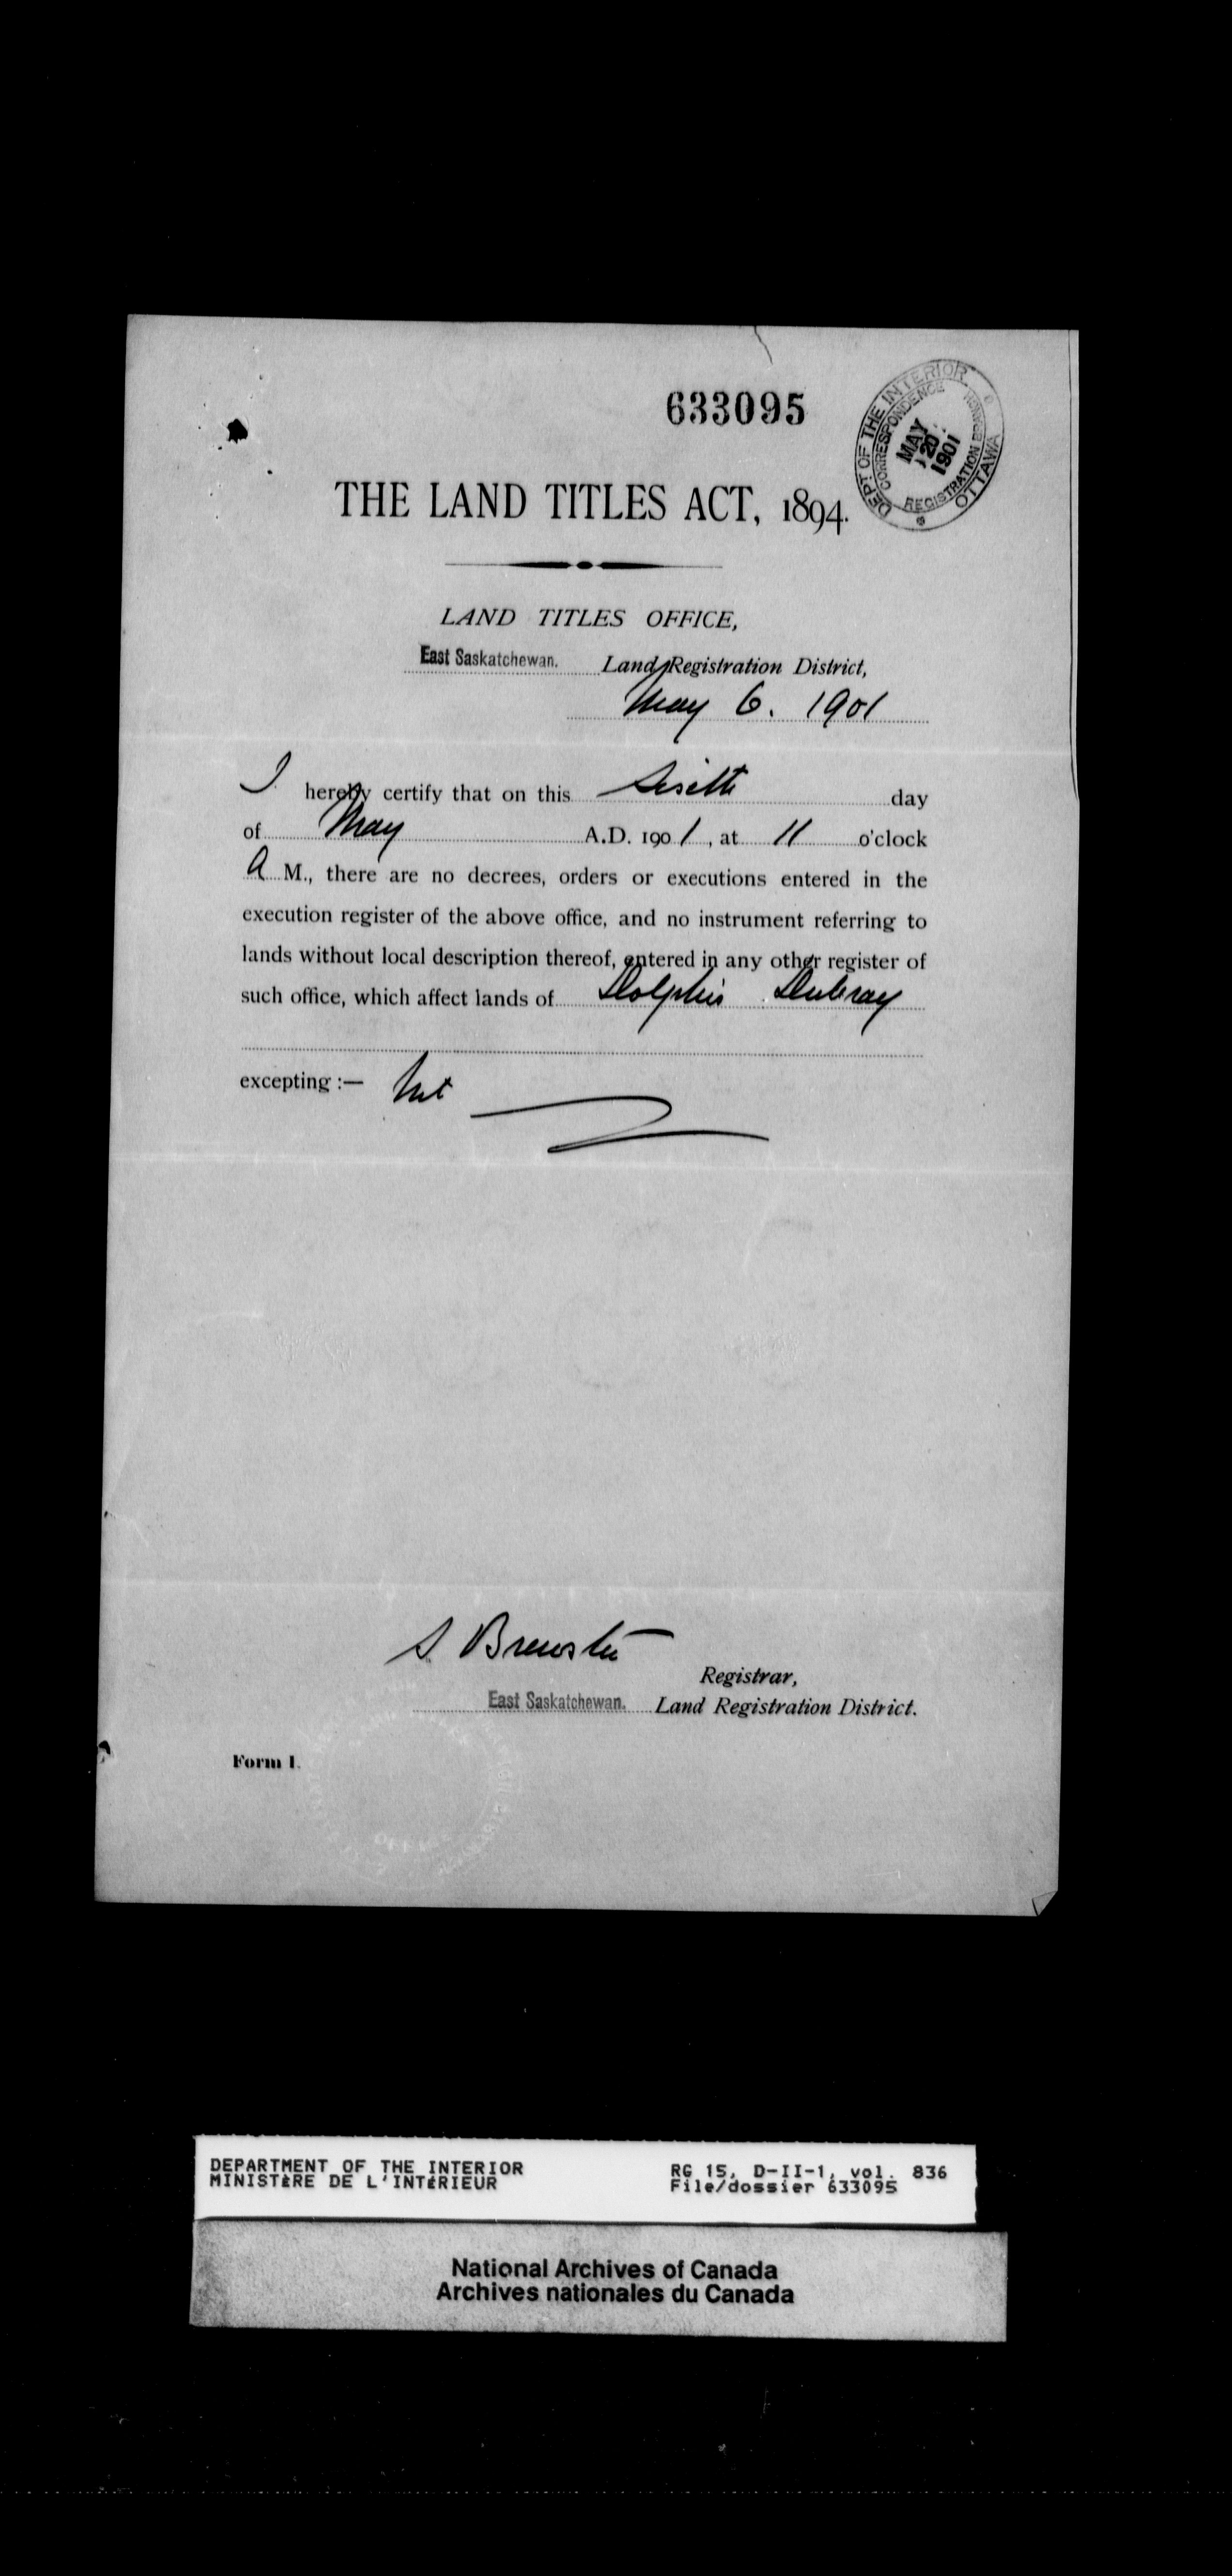 633095
DEPT. OF THE INTERIOR
CORRESPONDENCE
MAY
20
1901
REGISTRATION BRANCH
OTTAWA
THE LAND TITLES ACT, 1894.
LAND TITLES OFFICE,
East Saskatchewan. Land Registration District,
May 6. 1901
I hereby certify that on this day
of May A.D. 1901, at 11 o'clock
A M., there are no decrees, orders or executions entered in the
execution register of the above office, and no instrument referring to
lands without local description thereof, entered in any other register of
such office, which affect lands of Dolphis Dubray
excepting :—
S Brewster
Registrar,
East Saskatchewan. Land Registration District.
Form I.
DEPARTMENT OF THE INTERIOR
MINISTÈRE DE L'INTÉRIEUR
RG 15, D-II-1, vol. 836
File/dossier 633095
National Archives of Canada
Archives nationales du Canada